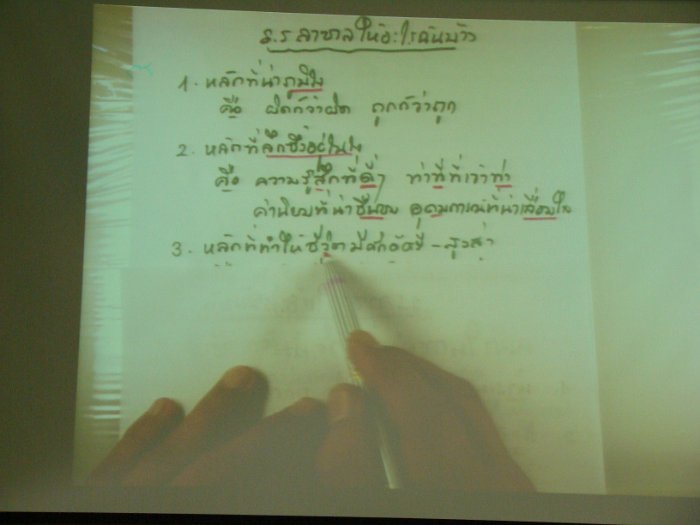 ร.ร ลาซาลให้อะไรฉันบ้าง
1. หลักที่น่าภูมิใจ
คือ ผิดก็ว่าผิด ถูกก็ว่าถูก
2. หลักที่ลึกซึ้งอยู่ในใจ
คือ ความรู้สึกที่ดีๆ ท่าทีที่เร้า
ค่านิยมที่น่าชื่นชม อุดมการณ์ที่น่าเลื่อมใส
3. หลักที่ทำให้ชีวิตมีศักดิ์ศรี - สูงส่ง